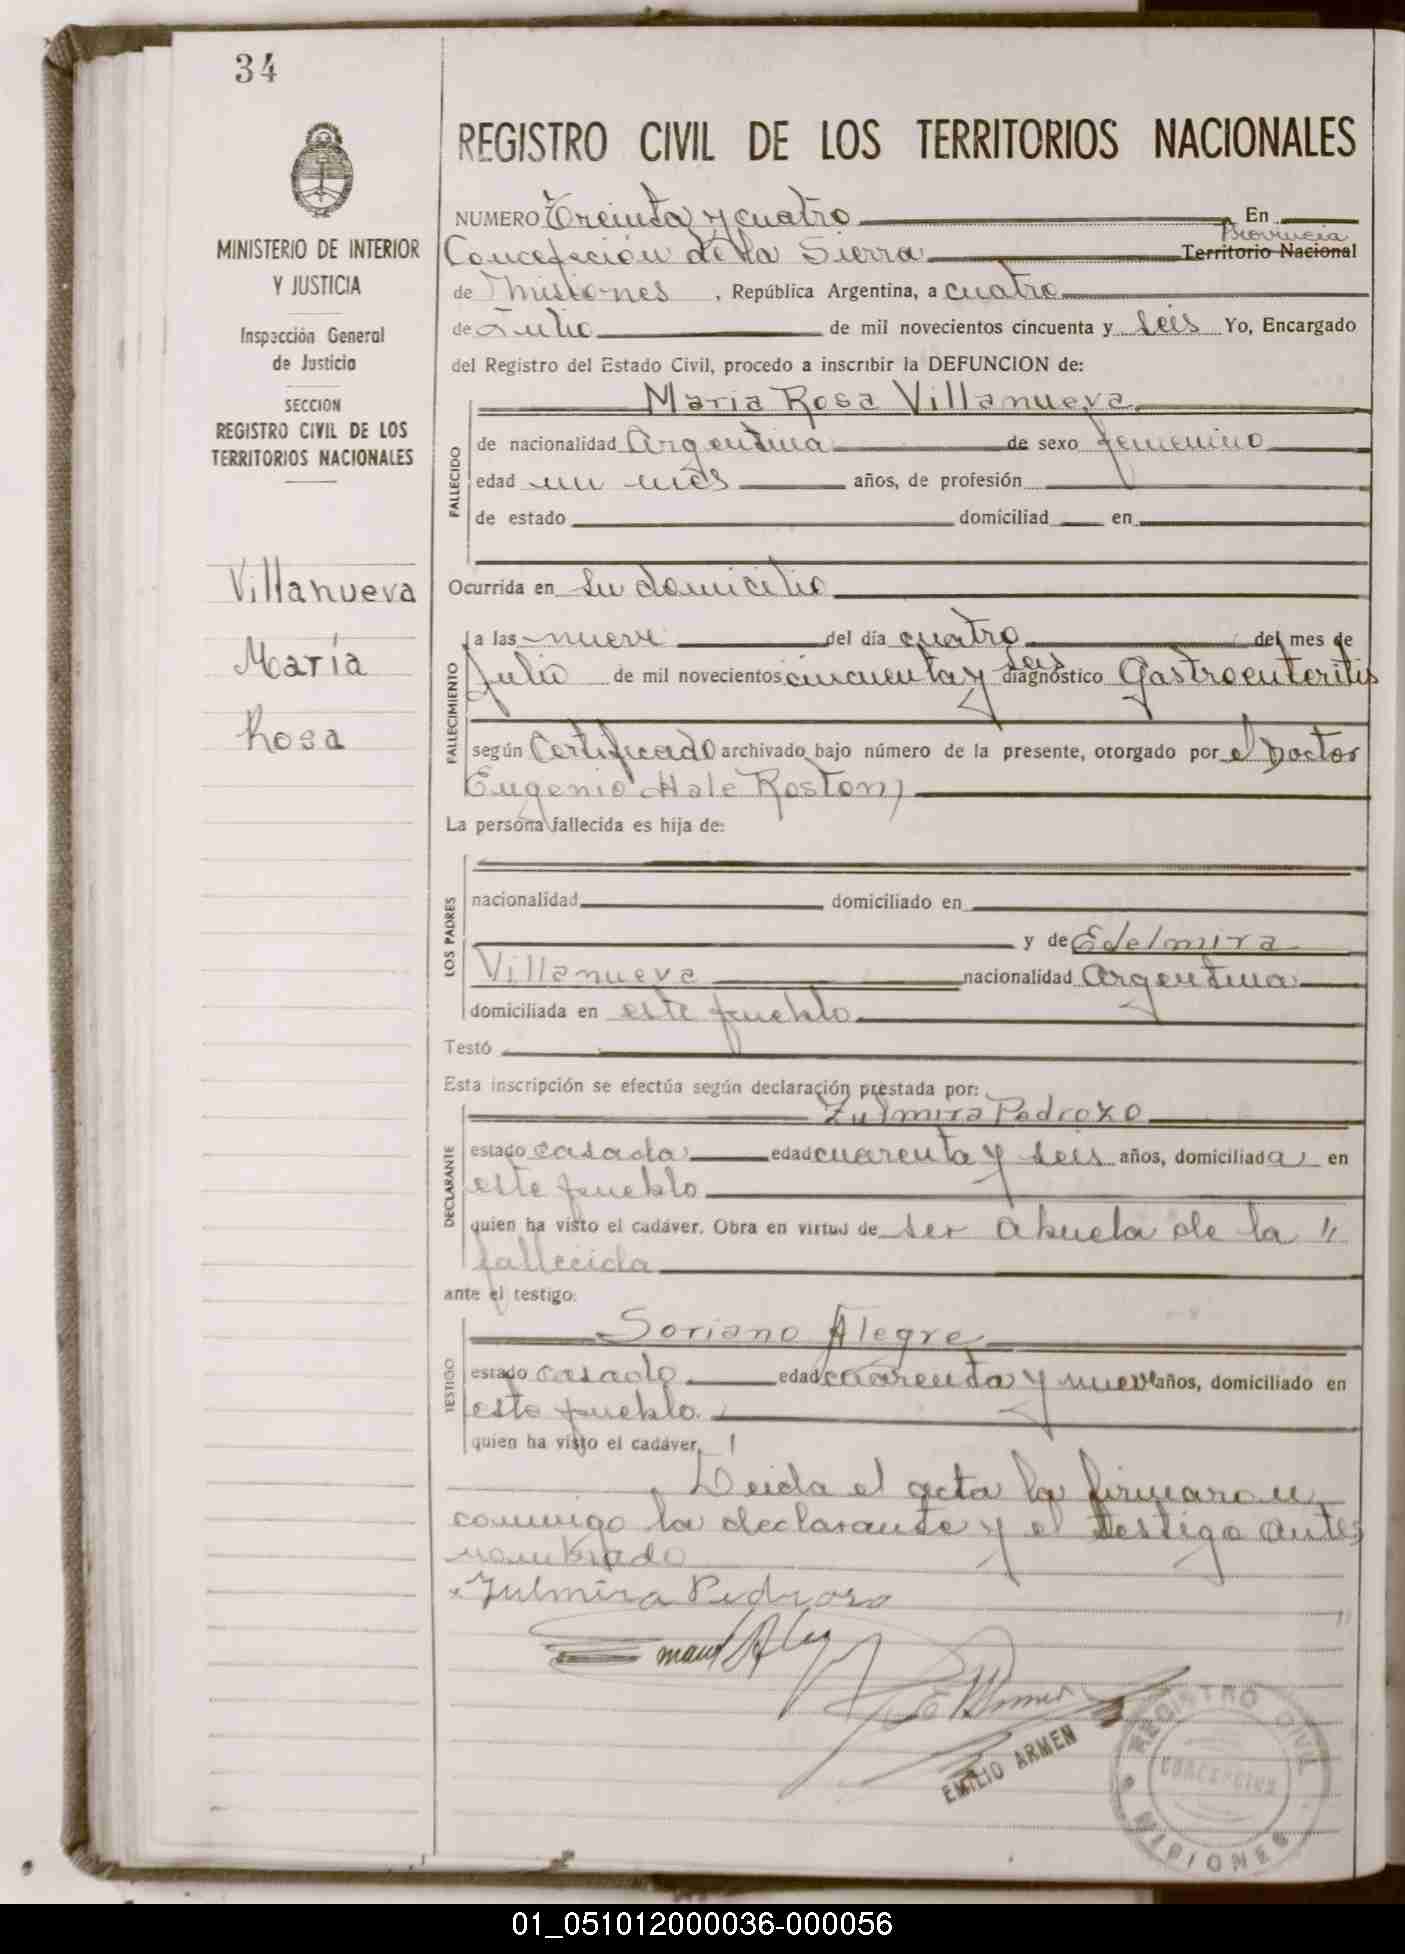 34
REGISTRO CIVIL DE LOS TERRITORIOS NACIONALES
MINISTERIO DE INTERIOR
Y JUSTICIA
Inspección General
de Justicia
SECCION
REGISTRO CIVIL DE LOS
TERRITORIOS NACIONALES
Villanueva
María
Rosa
NUMERO Treinta y cuatro En
Provincia
Concepción de la Sierra Territorio Nacional
de Misiones, República Argentina, a cuatro
de Julio de mil novecientos cincuenta y seis Yo, Encargado
del Registro del Estado Civil, procedo a inscribir la DEFUNCION de:
FALLECIDO
Maria Rosa Villanueva
de nacionalidad Argentina de sexo femenino
edad un mes años, de profesión
de estado domiciliad en
Ocurrida en su domicilio
FALLECIMIENTO
a las nueve del día cuatro del mes de
Julio de mil novecientos cincuenta y seis diagnóstico Gastroenteritis
según Certificado archivado bajo número de la presente, otorgado por el Doctor
Eugenio Hale Roston
La persona fallecida es hija de:
LOS PADRES
nacionalidad domiciliado en
y de Edelmira
Villanueva nacionalidad Argentina
domiciliada en este pueblo
Testó
Esta inscripción se efectúa según declaración prestada por:
DECLARANTE
Zulmira Pedrozo
estado casada edad cuarenta y seis años, domiciliada en
este pueblo
quien ha visto el cadáver. Obra en virtud de ser abuela de la "
fallecida
ante el testigo:
TESTIGO
Soriano Alegre
estado casado edad cuarenta y nueve años, domiciliado en
este pueblo
quien ha visto el cadáver,
Leida el acta la firmaron
conmigo la declarante y el testigo antes
nombrado
Zulmira Pedrozo
EMILIO ARMEN
REGISTRO CIVIL
CONCEPCION
MISIONES
01_051012000036-000056